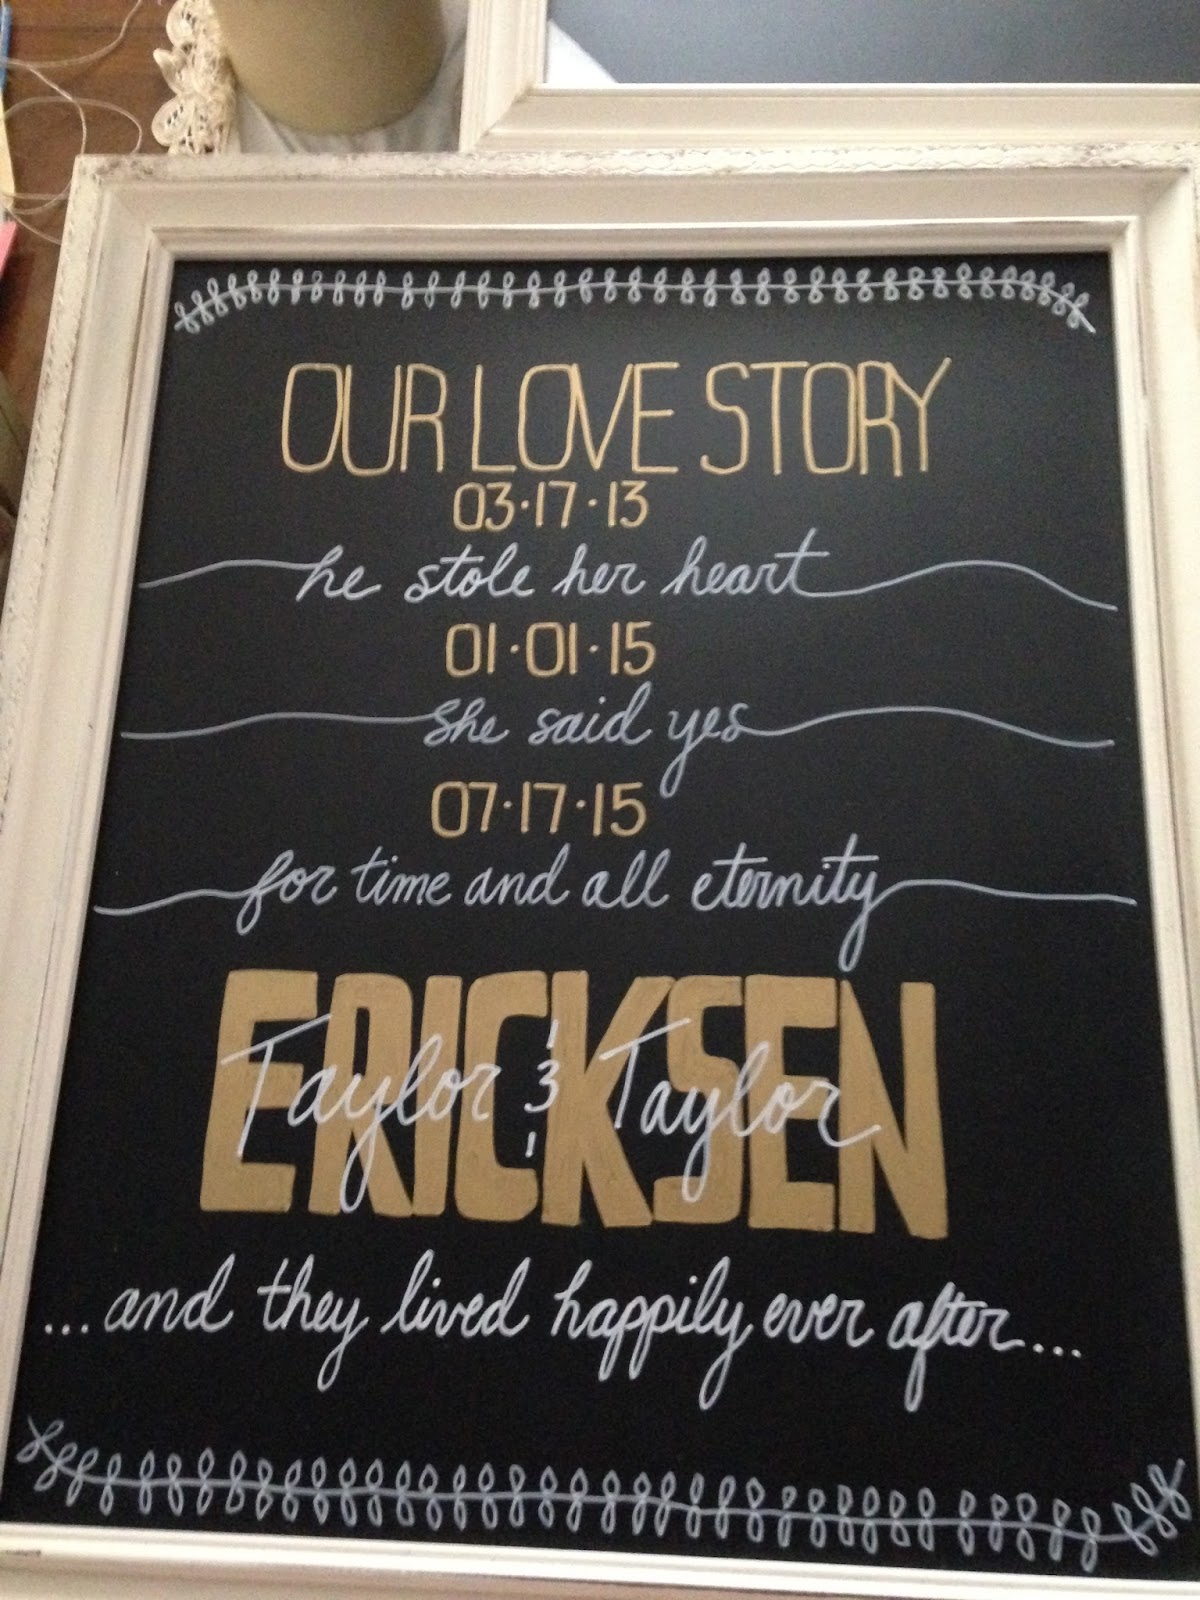 OUR LOVE STORY
03·17·13
he stole her heart
01·01·15
she said yes
07·17·15
for time and all eternity
ERICKSEN
Taylor & Taylor
...and they lived happily ever after...